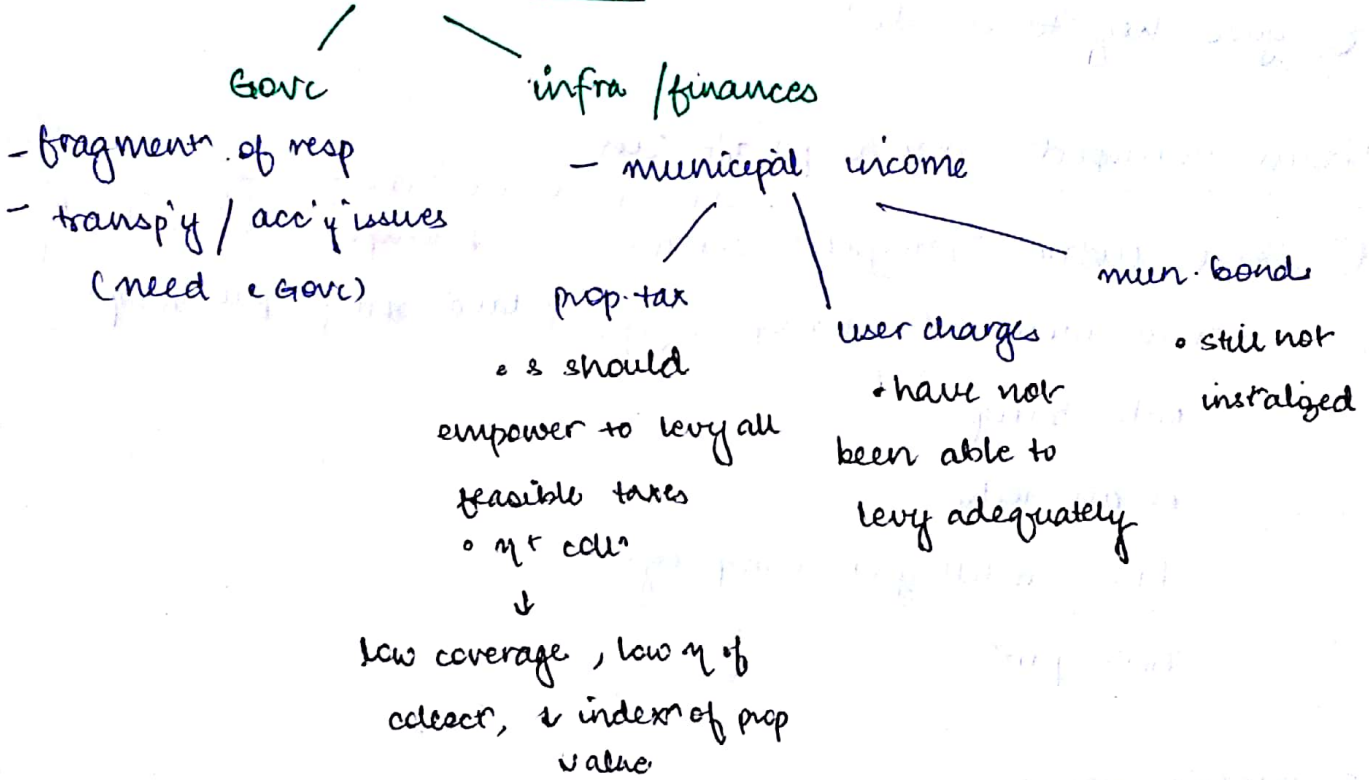 Govc
infra / finances
- fragmentn. of resp
- transp'y / acc'y issues
(need eGovc)
- municipal income
prop. tax
• s should
empower to levy all
feasible taxes
• ηt colln
↓
low coverage, low η of
collectn, ↓ indexn of prop
value
user charges
• have not
been able to
levy adequately
mun. bonds
• still not
instalized